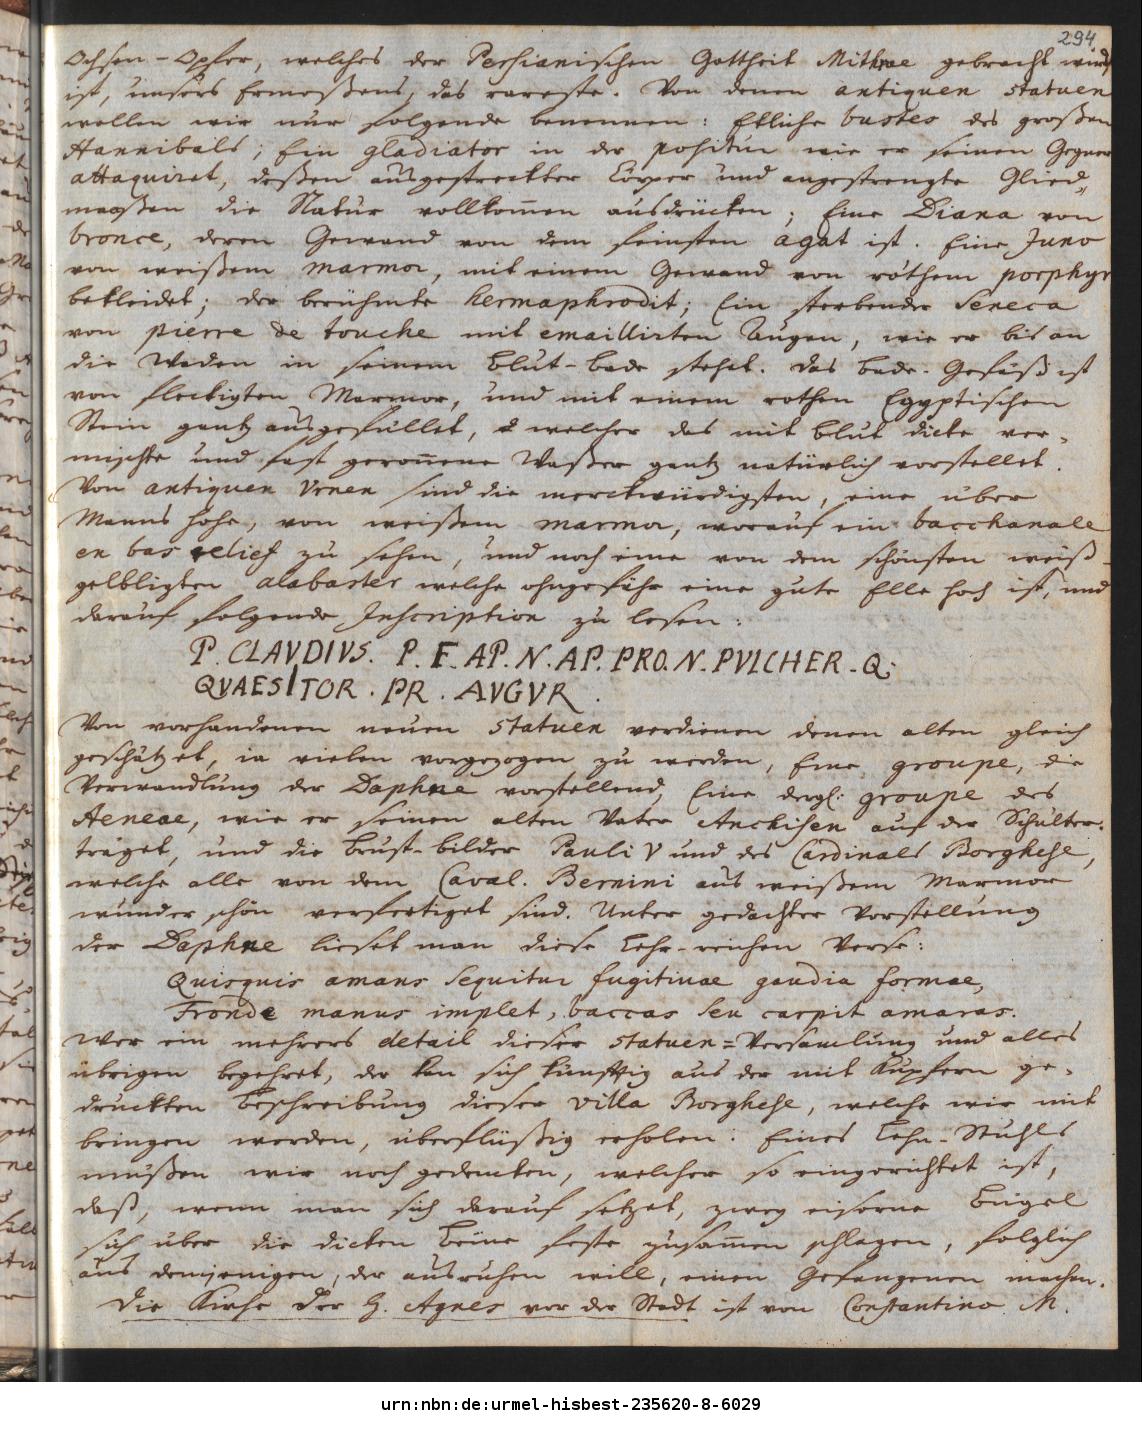 294
Ochsen-Opfer, welches der Persianischen Gottheit Mithrae gebracht wird
ist, unsers Ermeßens, das rareste. Von denen antiquen statuen
wollen wir nur folgende benennen: Etliche bustes des großen
Hannibals; Ein gladiator in der positur wie er seinen Gegner
attaquiret, deßen ausgestreckter Cörper und angestrengte Glied„
maaßen die Natur vollkom̄en ausdrücken; Eine Diana von
bronce, deren Gewand von dem feinsten agat ist. Eine Juno
von weißem marmor, mit einem Gewand von rothem porphyr
bekleidet; der berühmte hermaphrodit; Ein sterbender Seneca
von pierre de touche mit emaillirten Augen, wie er bis an
die Waden in seinem Blut-bade stehet. Das bade-Gefäß ist
von fleckigten Marmor, und mit einem rothen Egyptischen
Stein gantz ausgefüllet, welcher das mit Blut dicke ver-
mischte und fast geron̄ene Waßer gantz natürlich vorstellet.
Von antiquen Vrnen sind die merckwürdigsten, eine über
Manns hohe, von weißem marmor, worauf ein bacchanale
en bas relief zu sehen, und noch eine von dem schönsten weiß-
gelbligten alabaster welche ohngefähr eine gute Elle hoch ist, und
darauf folgende Inscription zu lesen:
P. CLAVDIVS. P. F. AP. N. AP. PRO. N. PVLCHER. Q:
QVAESITOR. PR. AVGVR.
Von vorhandenen neuen statuen verdienen denen alten gleich
geschätzet, ia vielen vorgezogen zu werden, Eine groupe, die
Verwandlung der Daphne vorstellend, Eine dergl: groupe des
Aeneae, wie er seinen alten Vater Anchisen auf der Schulter
träget, und die Brust-bilder Pauli V und des Cardinals Borghese,
welche alle von dem Caval. Bernini aus weißem Marmor
wunder schön verfertiget sind. Unter gedachter Vorstellung
der Daphne lieset man diese Lehr-reichen Verse:
Quisquis amans sequitur fugitivae gaudia formae,
Fronde manus implet, baccas seu carpit amaras.
Wer ein mehrers detail dieser statuen=Versam̄lung und alles
übrigen begehret, der kan sich künfftig aus der mit Kupfern ge-
druckten Beschreibung dieser villa Borghese, welche wir mit
bringen werden, überflüßig erholen. Eines Lehn-Stuhls
müßen wir noch gedencken, welcher so eingerichtet ist,
daß, wenn man sich darauf setzet, zwey eiserne Bügel
sich über die dicken Beine feste zusam̄en schlagen, folglich
aus demjenigen, der ausruhen will, einen Gefangenen machen.
Die Kirche der H. Agnes vor der Stadt ist von Constantino M.
urn:nbn:de:urmel-hisbest-235620-8-6029